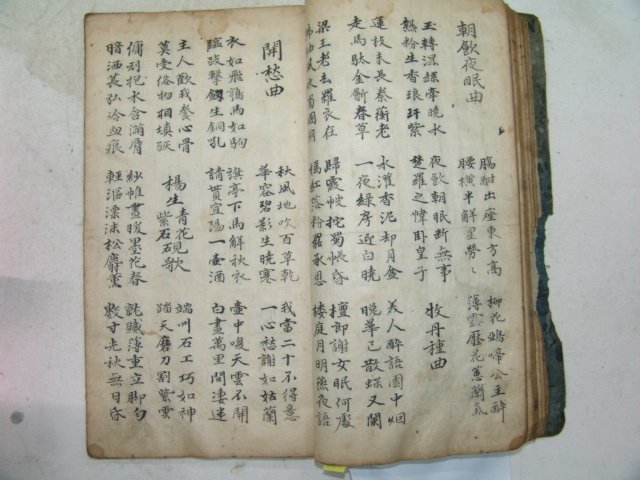 朝飲夜眠曲
觴酣出座東方高
腰橫半解星勞〻
柳花鴉啼公主醉
薄露壓花蕙蘭氣
玉轉濕絲牽曉水
熱粉生香琅玕紫
夜飲朝眠斷無事
楚羅之幃臥皇子
牧丹種曲
蓮枝未長秦蘅老
走馬馱金劚春草
水灌香泥却月盆
一夜綠房迎白曉
美人醉語園中烟
晚華已散蝶又闌
梁王老去羅衣在
拂袖風吹蜀國絃
歸霞帔拖蜀帳昏
嫣紅落粉罷承恩
檀郎謝女眠何處
樓庭月明燕夜語
開愁曲
秋風地吹百草乾
華容碧影生曉寒
我當二十不得意
一心愁謝如枯蘭
衣如飛鶉馬如狗
臨歧擊劒生銅孔
旗亭下馬解秋衣
請貰宜陽一壺酒
壺中喚天雲不開
白晝萬里閒凄迷
主人勸我養心骨
莫受俗物相填豗
楊生青花紫石硯歌
端州石工巧如神
踏天磨刀割紫雲
傭刓抱水含滿唇
暗洒萇弘冷血痕
紗帷晝暖墨花春
輕漚漂沫松麝薰
膩薄重立脚勻
數寸光秋無日昏